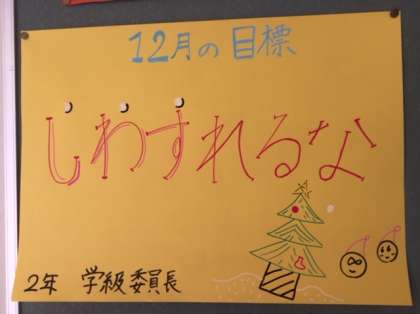 12月の目標
しわすれるな
2年 学級委員長